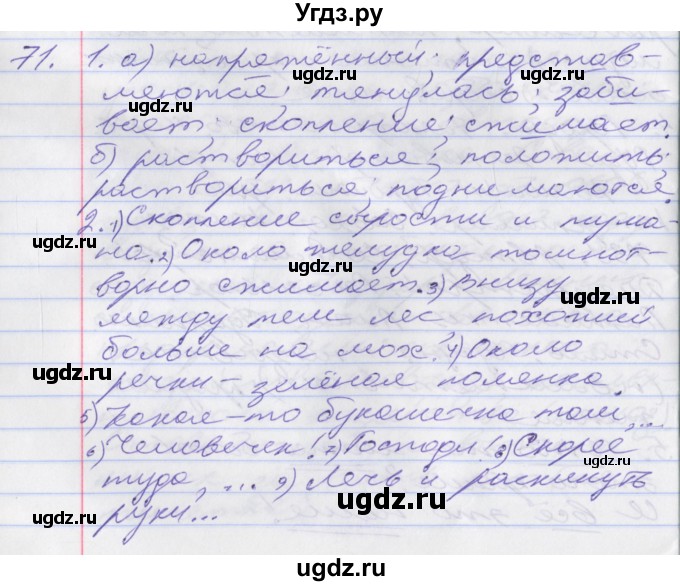 Угдз.ру
71. 1. а) напряжённый; представ-
ляются; тянулась; заби-
вает; скопление; сжимает.
б) раствориться; положить;
раствориться; поднимаются.
2. 1) Скопление сырости и тума-
на. 2) Около желудка тошнот-
ворно сжимает. 3) Внизу
между тем лес, похожий
больше на мох. 4) Около
речки – зелёная полянка.
5) Какая-то букашечка там, ...
6) Человечек! 7) Господи! 8) Скорее
туда, ... 9) Лечь и раскинуть
руки...
ugdz.ru
ugdz.ru
ugdz.ru
ugdz.ru
ugdz.ru
ugdz.ru
ugdz.ru
ugdz.ru
ugdz.ru
ugdz.ru
ugdz.ru
ugdz.ru
ugdz.ru
ugdz.ru